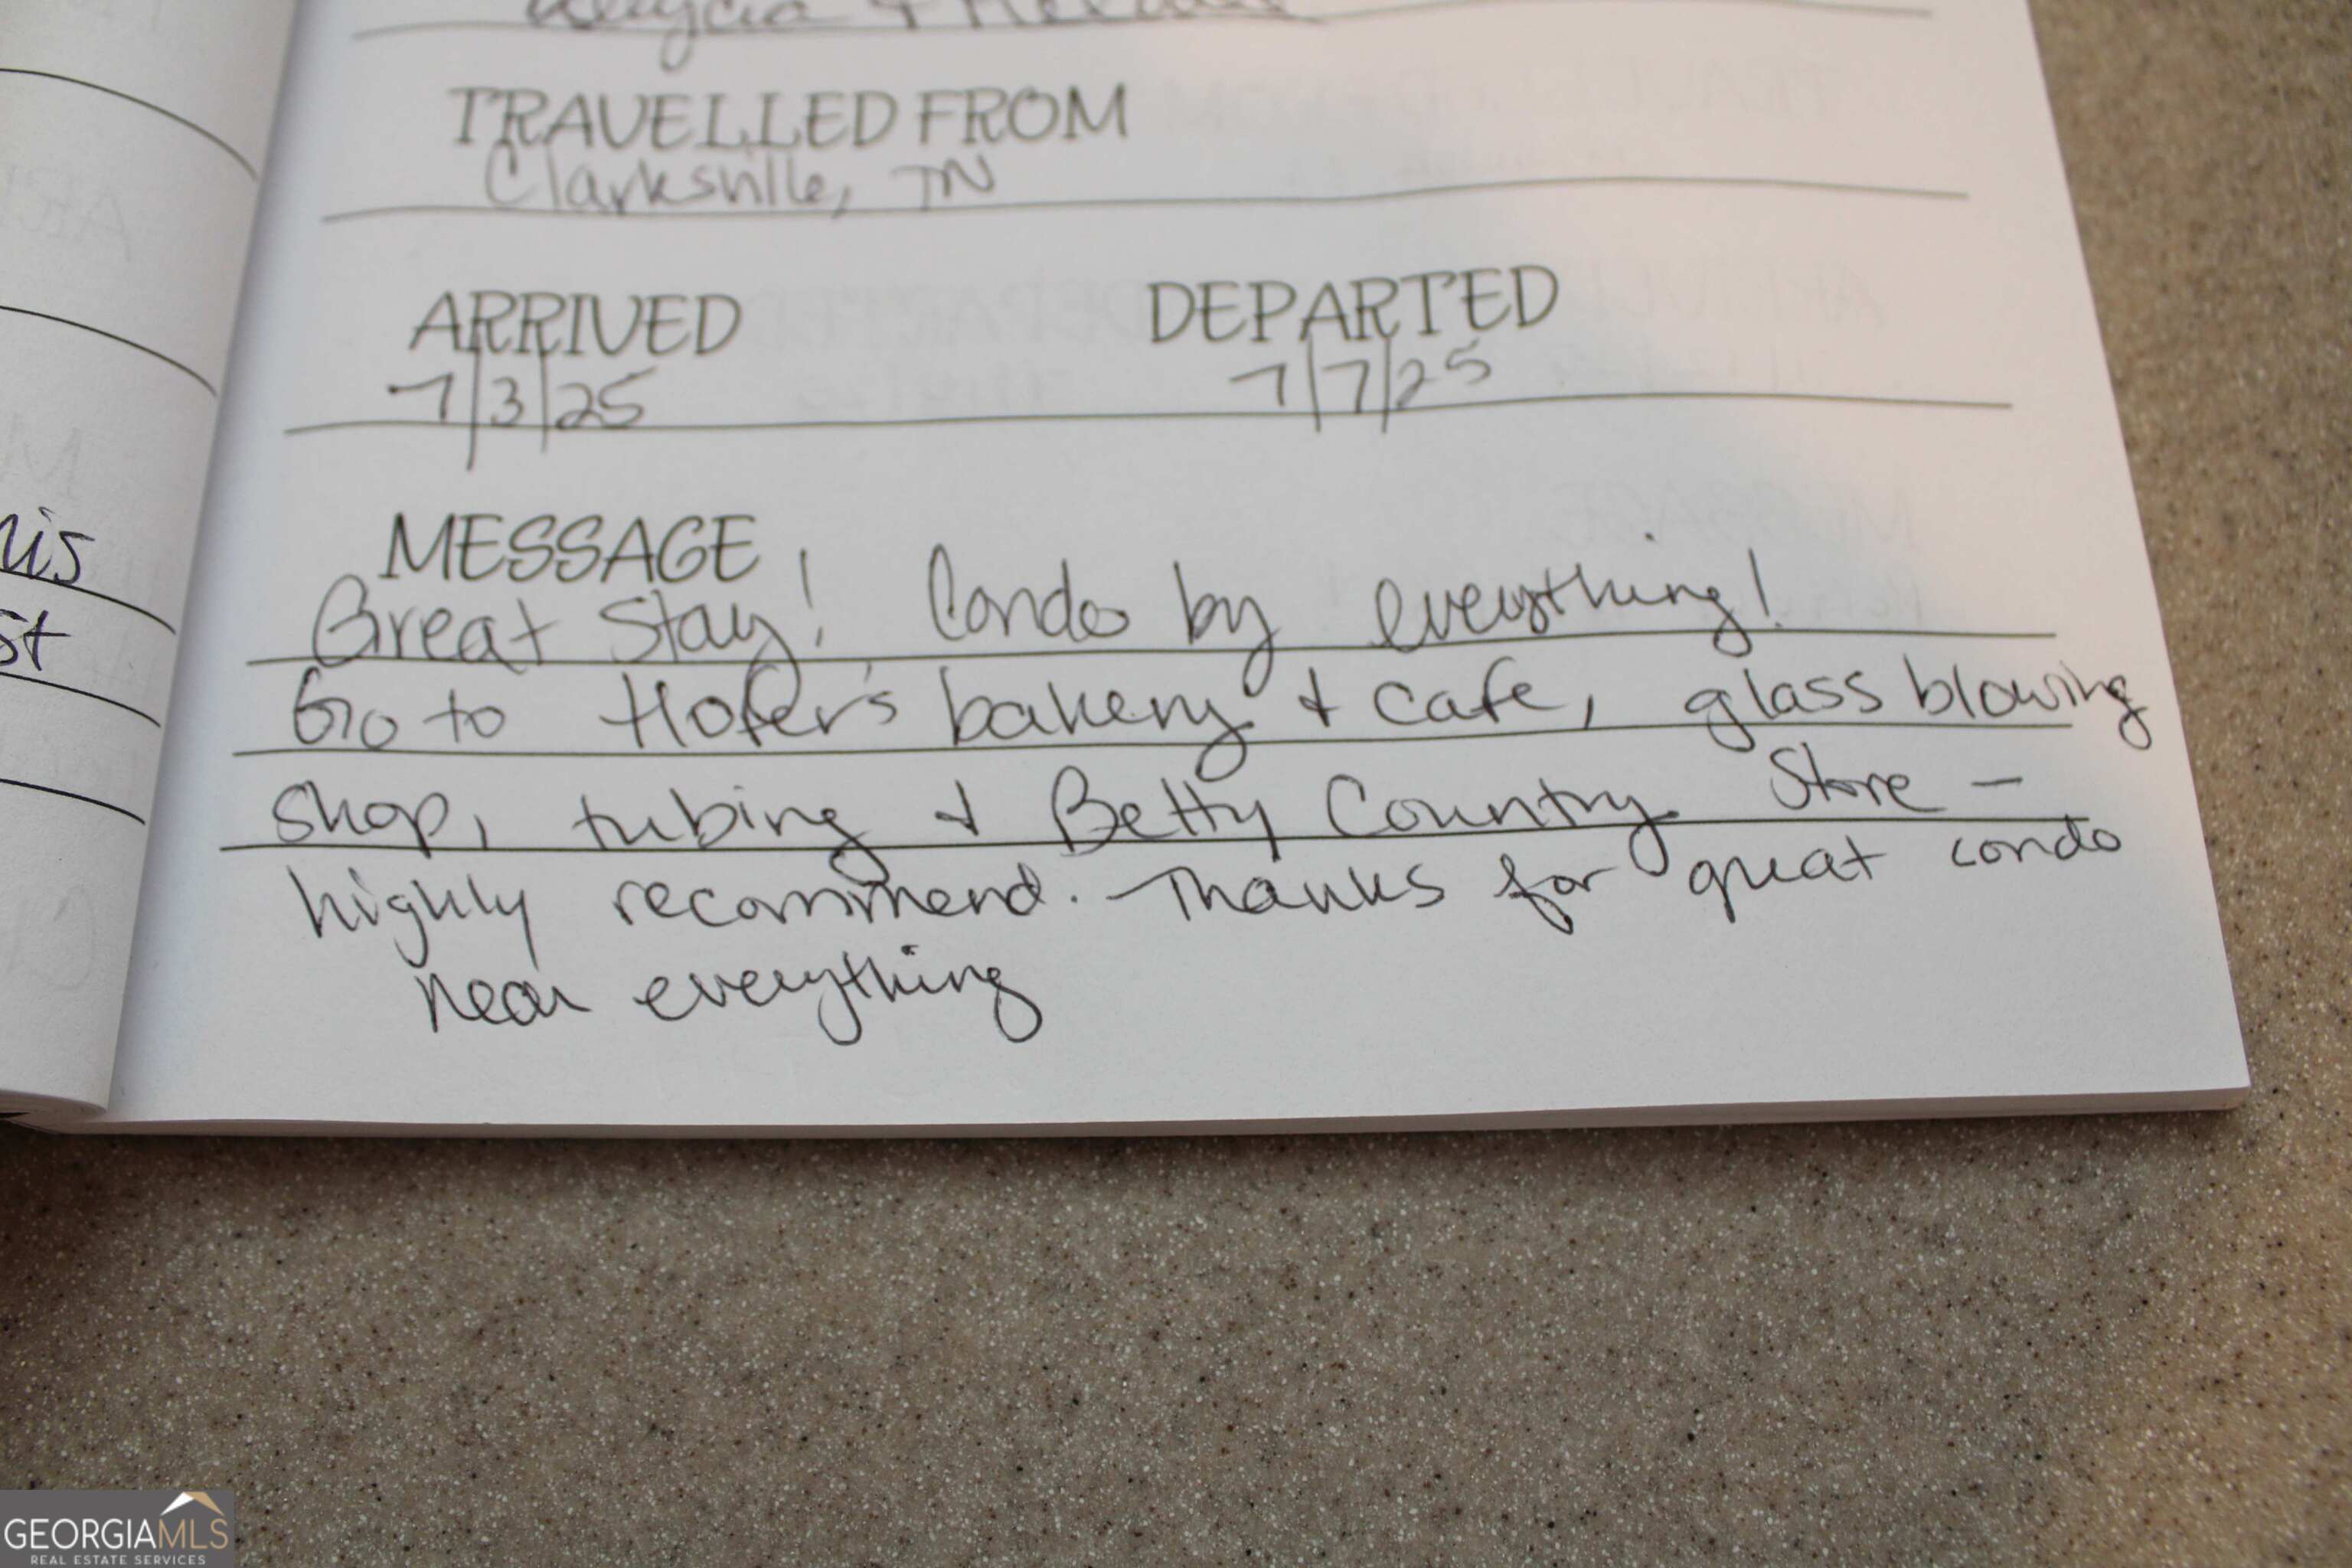 TRAVELLED FROM
Clarksville, TN
ARRIVED DEPARTED
7/3/25 7/7/25
MESSAGE
Great Stay! Condo by everything!
Go to Hofer's bakery & cafe, glass blowing
shop, tubing & Betty Country Store -
highly recommend. Thanks for great condo
near everything
st
GEORGIAMLS
REAL ESTATE SERVICES